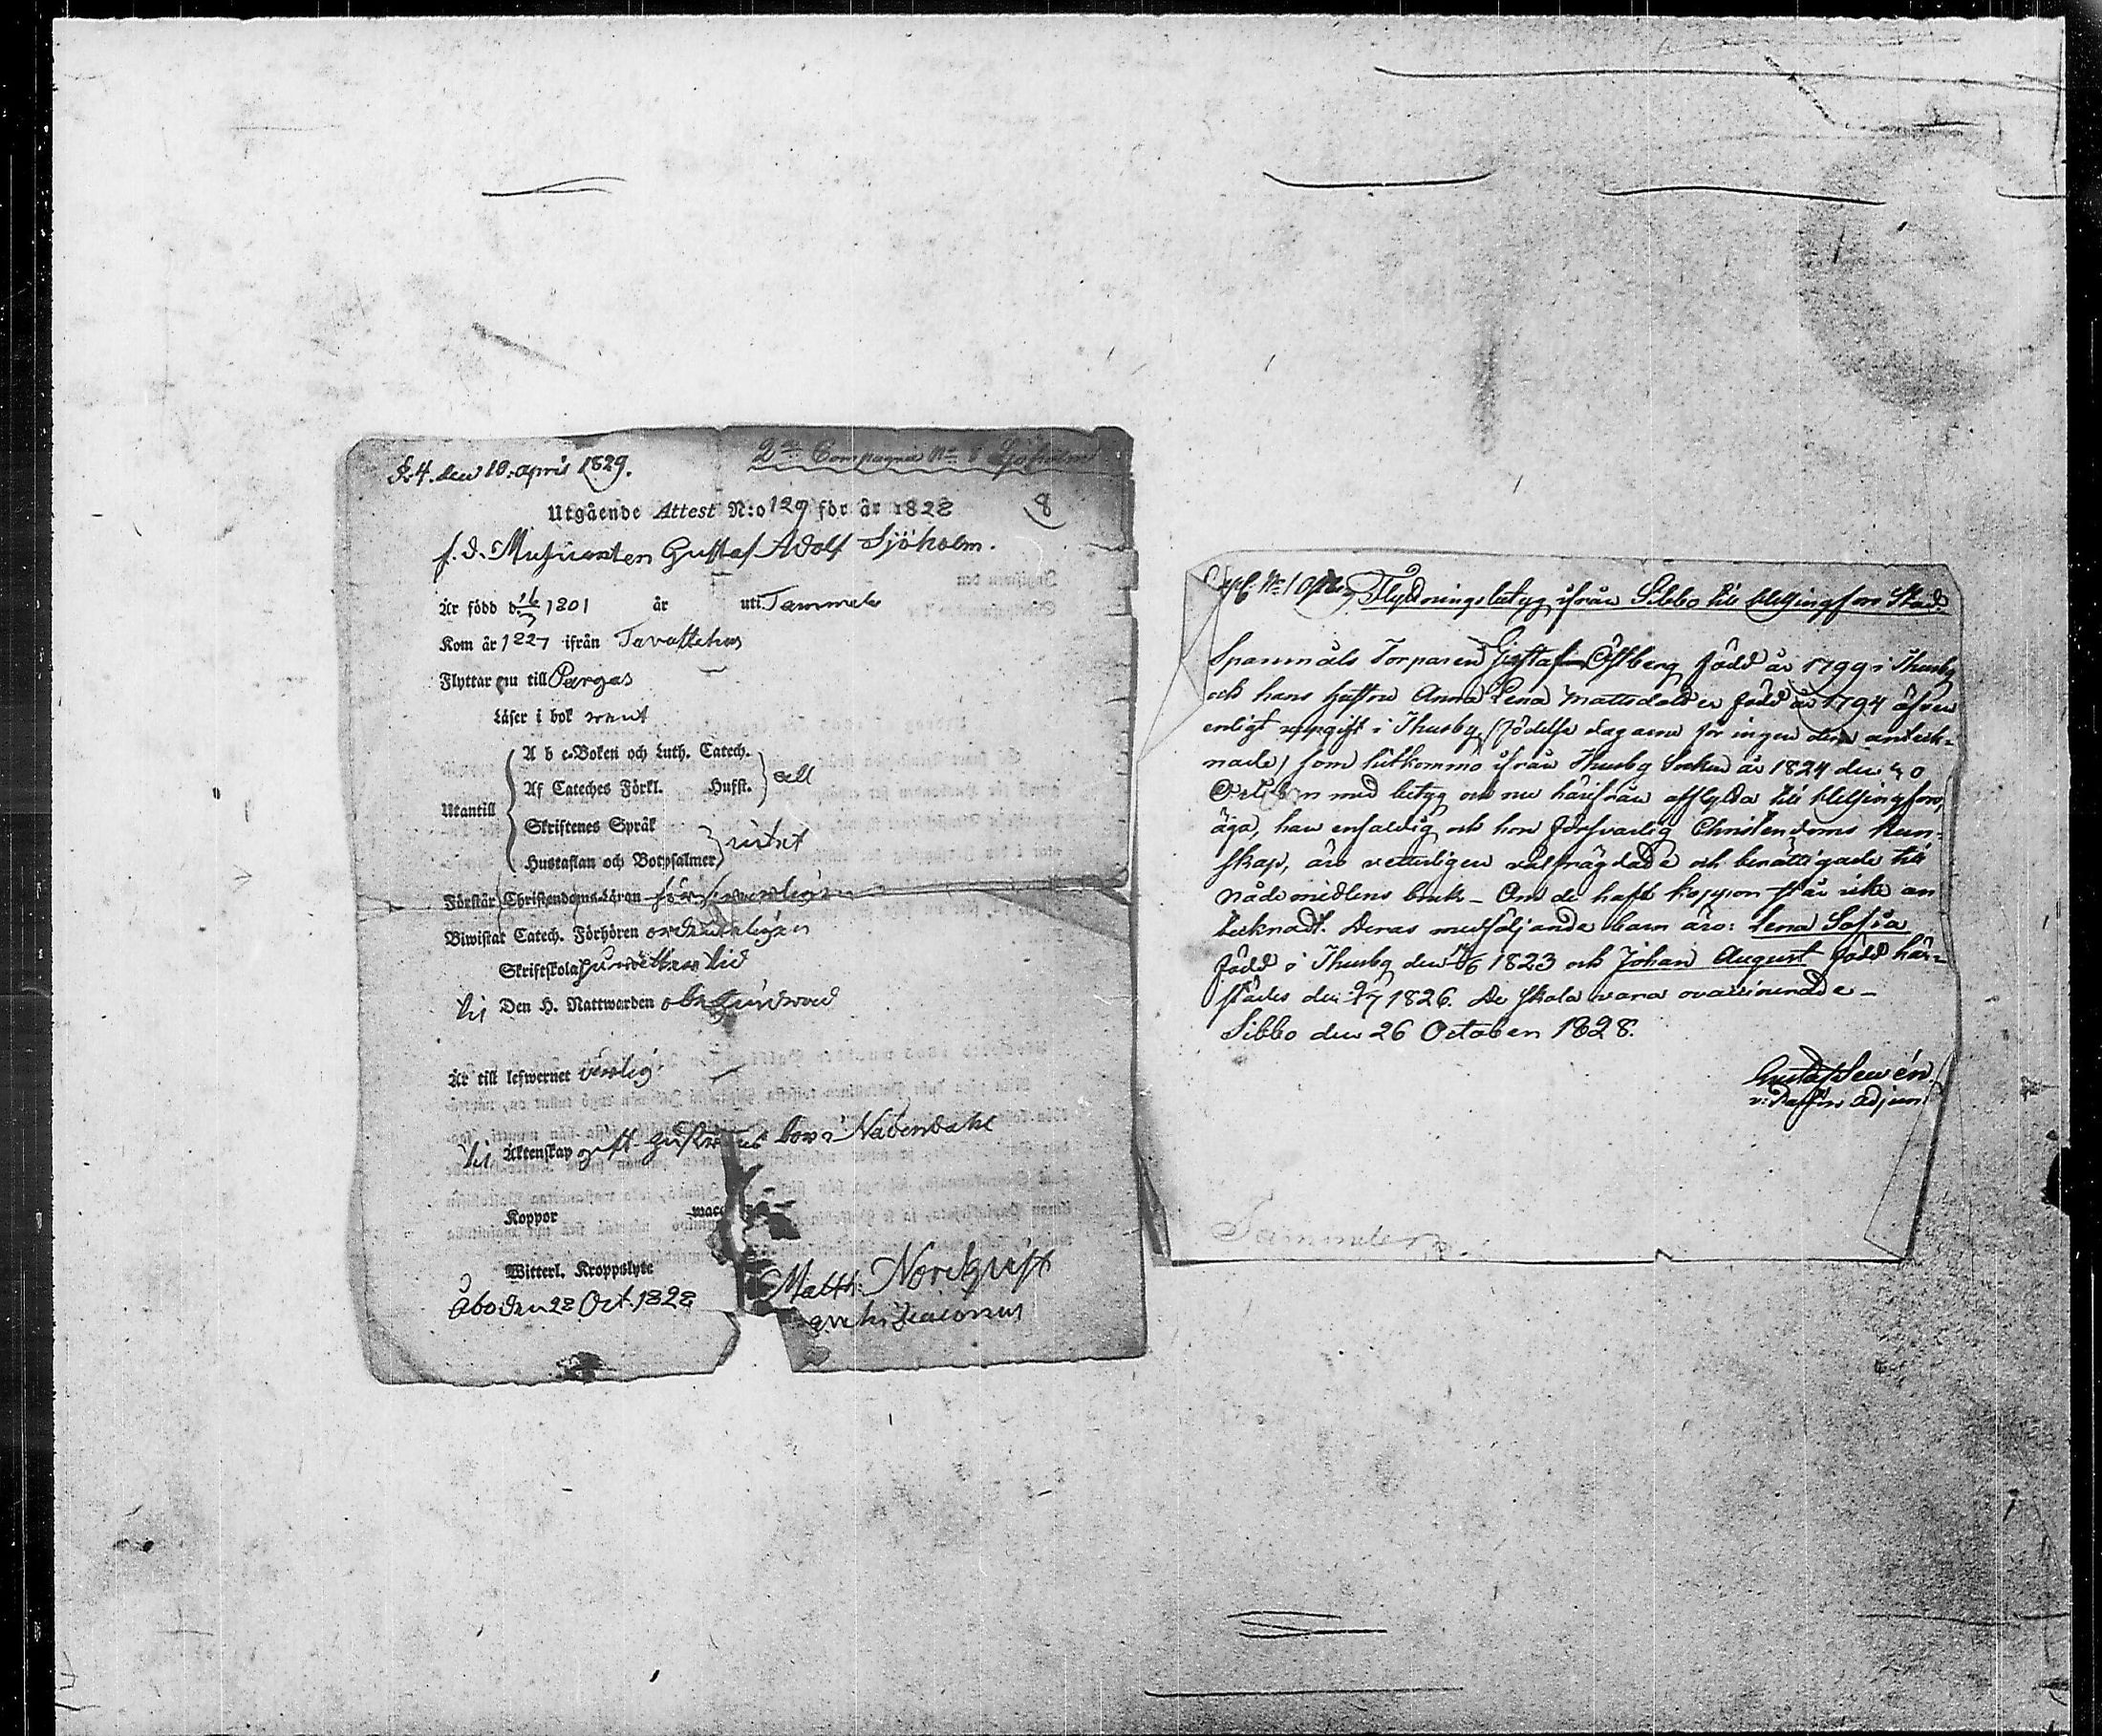 den 10. april 1829.
2dra Compagnie No 8 Sjöholm
8
Utgående Attest N:o 129 för år 1828
f.d. Musicanten Gustaf Adolf Sjöholm.
Är född d. 16/7 1801 år uti Tammela
Kom år 1827 ifrån Tavastehus
Flyttar nu till Pargas
Läser i bok rent
Utantill
A b c-Boken och Luth. Catech.
Af Cateches Förkl. Husst. all
Skriftenes Språk
Hustaflan och Botpsalmer, intet
Förstår Christendoms-Läran försvarligen
Biwistat Catech. Förhören ordentligen
Skriftskola
til Den H. Nattwarden obehindrad
Är till lefwernet ärlig
til Äktenskap gift hustrun bor i Nådendahl
Koppor wacc
Witterl. Kroppslyte
Åbo den 28 Oct. 1828
Matth: Nordqvist
archidiaconus
Flyttningsbetyg ifrån Sibbo till Helsingfors Stad.
Spanmåls Torparen Gustaf Östberg född år 1799 i Thusby
och hans hustru Anna Lena Mattsdotter född år 1794 äfven
enligt uppgift i Thusby, (födelse dagarne för ingen dera anteck-
nade) som hitkommo ifrån Thusby Socken år 1824 den 30
October med betyg och nu härifrån afflytta till Helsingfors,
äga, han enfaldig och hon försvarlig Christendoms kun-
skap, äro vetterligen välfrägdade och berättigade till
nådemedlens bruk - Om de haft koppor står icke an
tecknadt. Deras medföljande barn äro: Lena Sofia
född i Thusby den 14/6 1823 och Johan August född här-
städes den 9/7 1826. De skola vara ovaccinerade -
Sibbo den 26 October 1828.
Gustaf Levén
v: Pastors Adjunct
Tammela